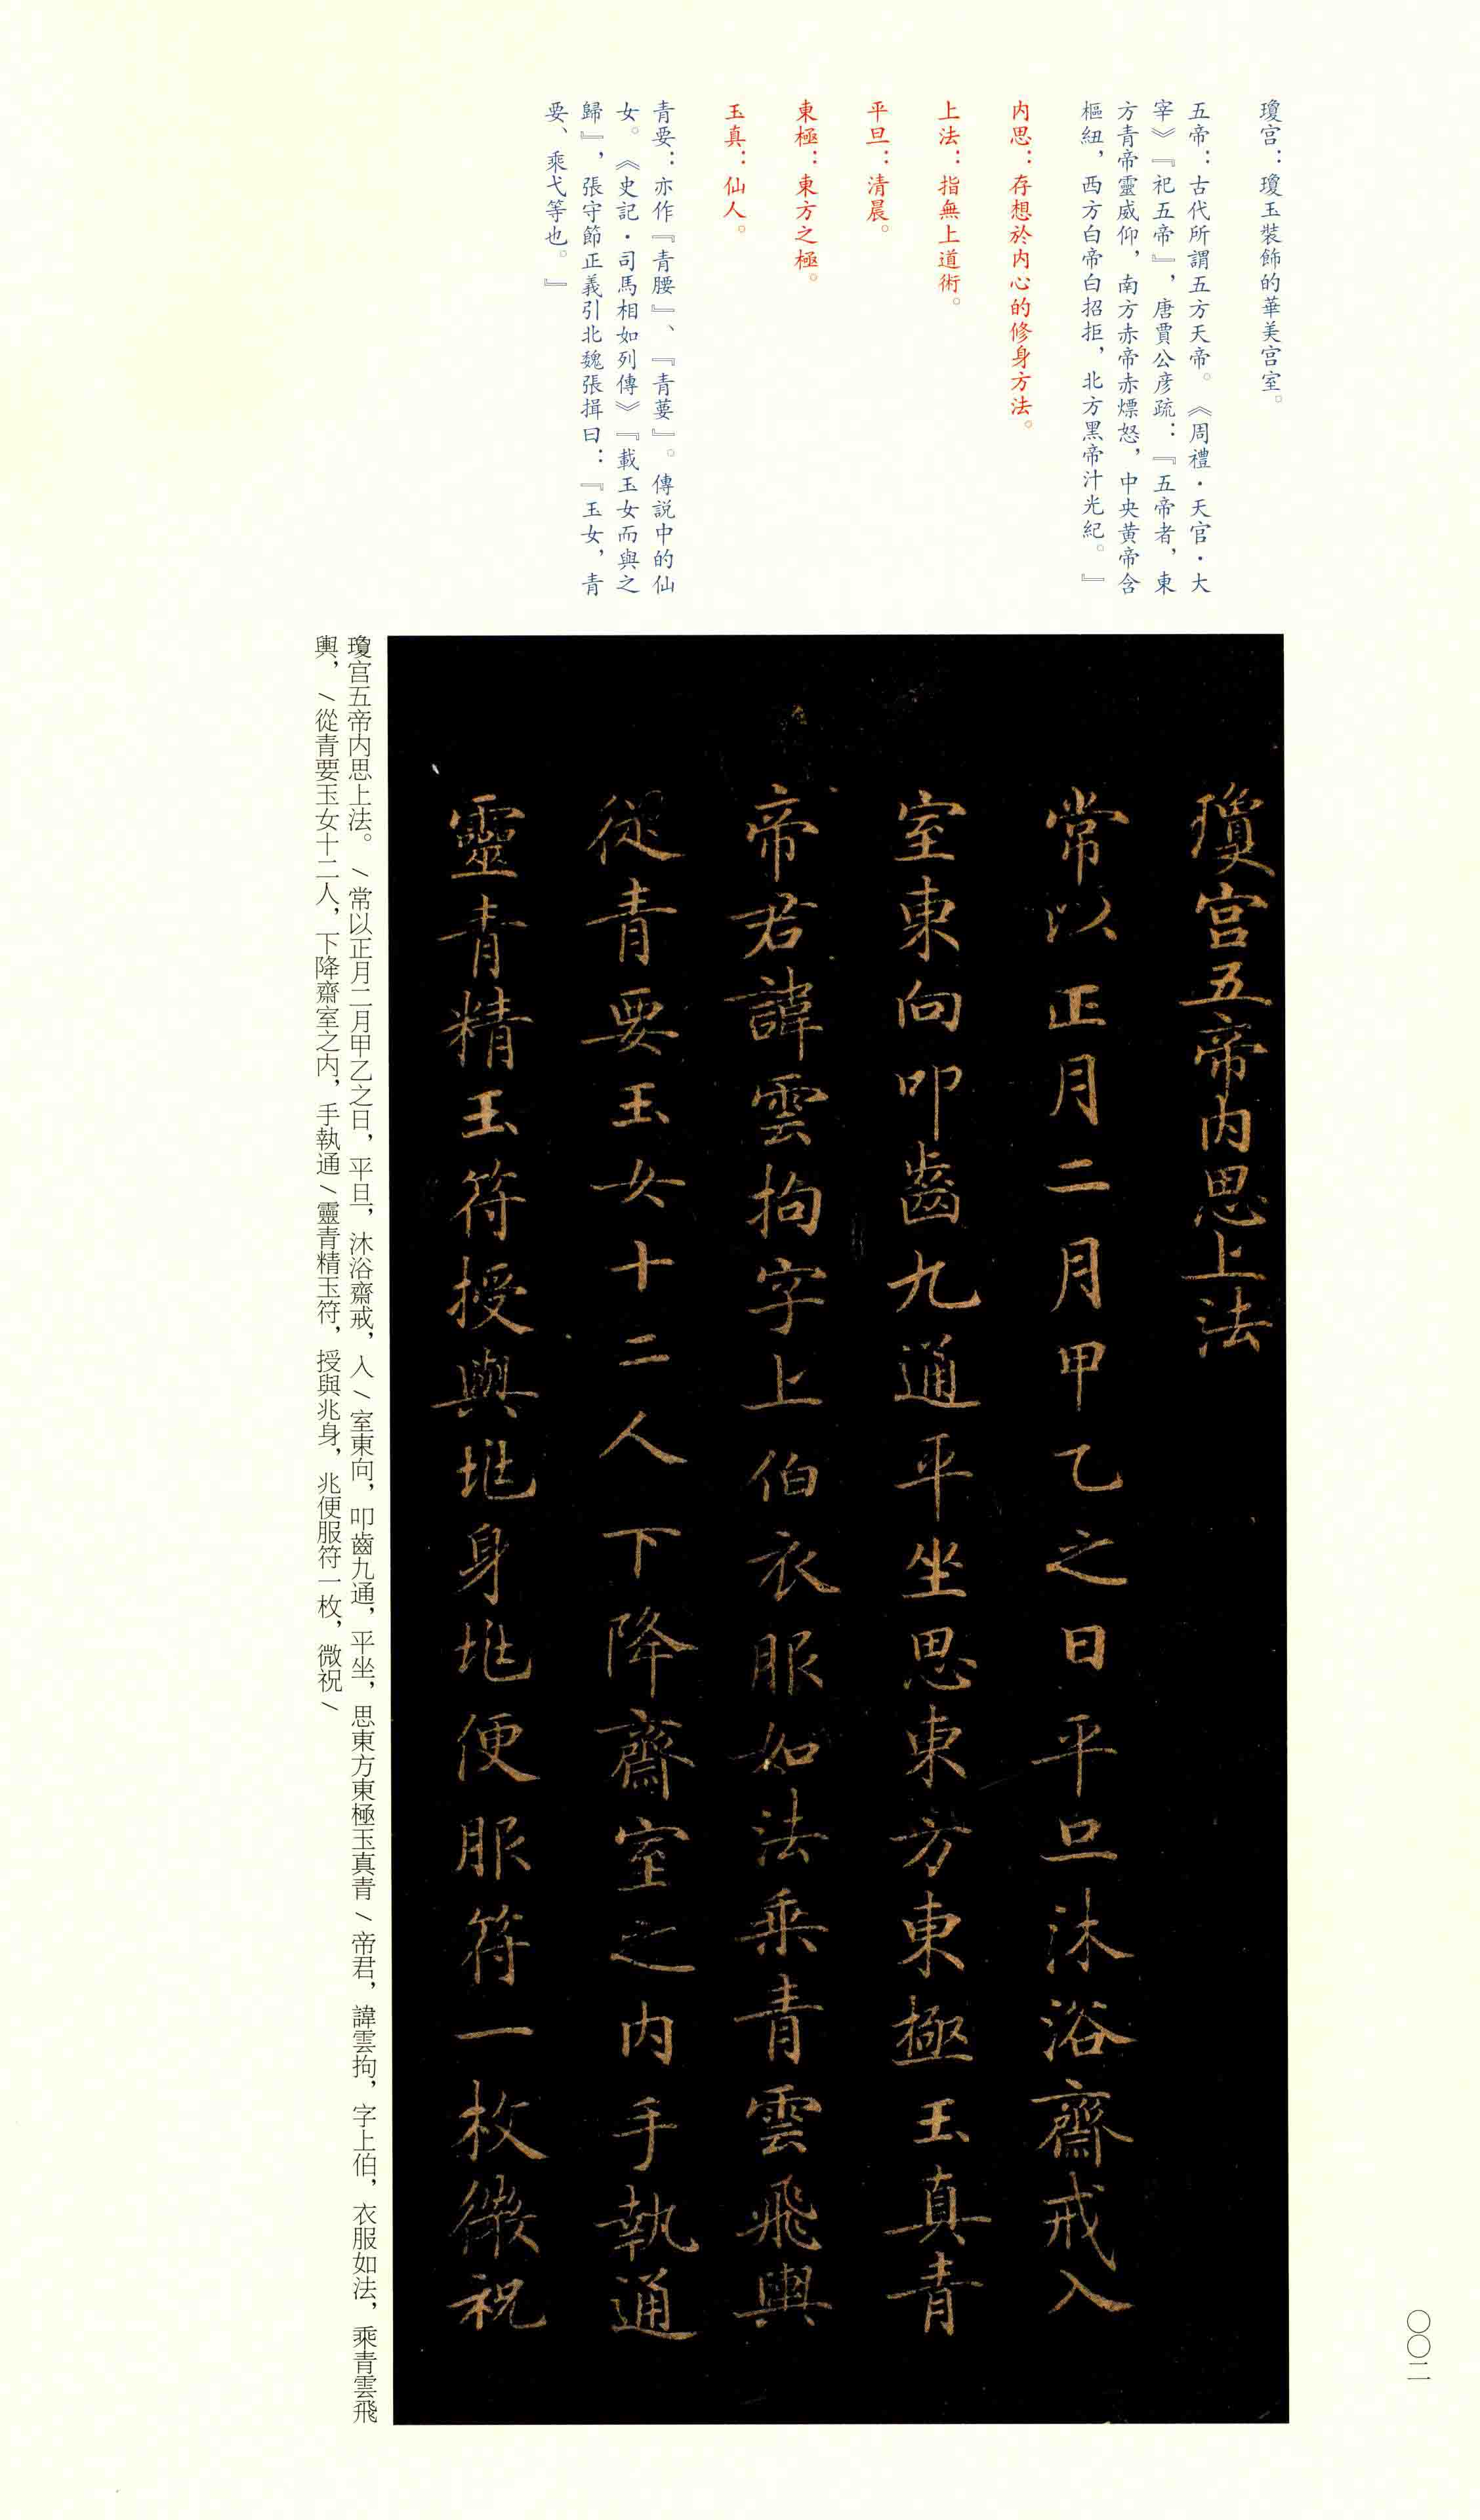 瓊宫：瓊玉裝飾的華美宫室。
五帝：古代所謂五方天帝。《周禮·天官·大
宰》『祀五帝』，唐賈公彦疏：『五帝者，東
方青帝靈威仰，南方赤帝赤熛怒，中央黄帝含
樞紐，西方白帝白招拒，北方黑帝汁光紀。』
内思：存想於内心的修身方法。
上法：指無上道術。
平旦：清晨。
東極：東方之極。
玉真：仙人。
青要：亦作『青腰』、『青葽』。傳説中的仙
女。《史記·司馬相如列傳》『載玉女而與之
歸』，張守節正義引北魏張揖曰：『玉女，青
要、乘弋等也。』
瓊宫五帝内思上法
常以正月二月甲乙之日平旦沐浴齋戒入
室東向叩齒九通平坐思東方東極玉真青
帝君諱雲拘字上伯衣服如法乘青雲飛輿
從青要玉女十二人下降齋室之内手執通
靈青精玉符授與兆身兆便服符一枚微祝
瓊宫五帝内思上法。\常以正月二月甲乙之日，平旦，沐浴齋戒，入\室東向，叩齒九通，平坐，思東方東極玉真青\帝君，諱雲拘，字上伯，衣服如法，乘青雲飛
輿，\從青要玉女十二人，下降齋室之内，手執通\靈青精玉符，授與兆身，兆便服符一枚，微祝\
〇〇二